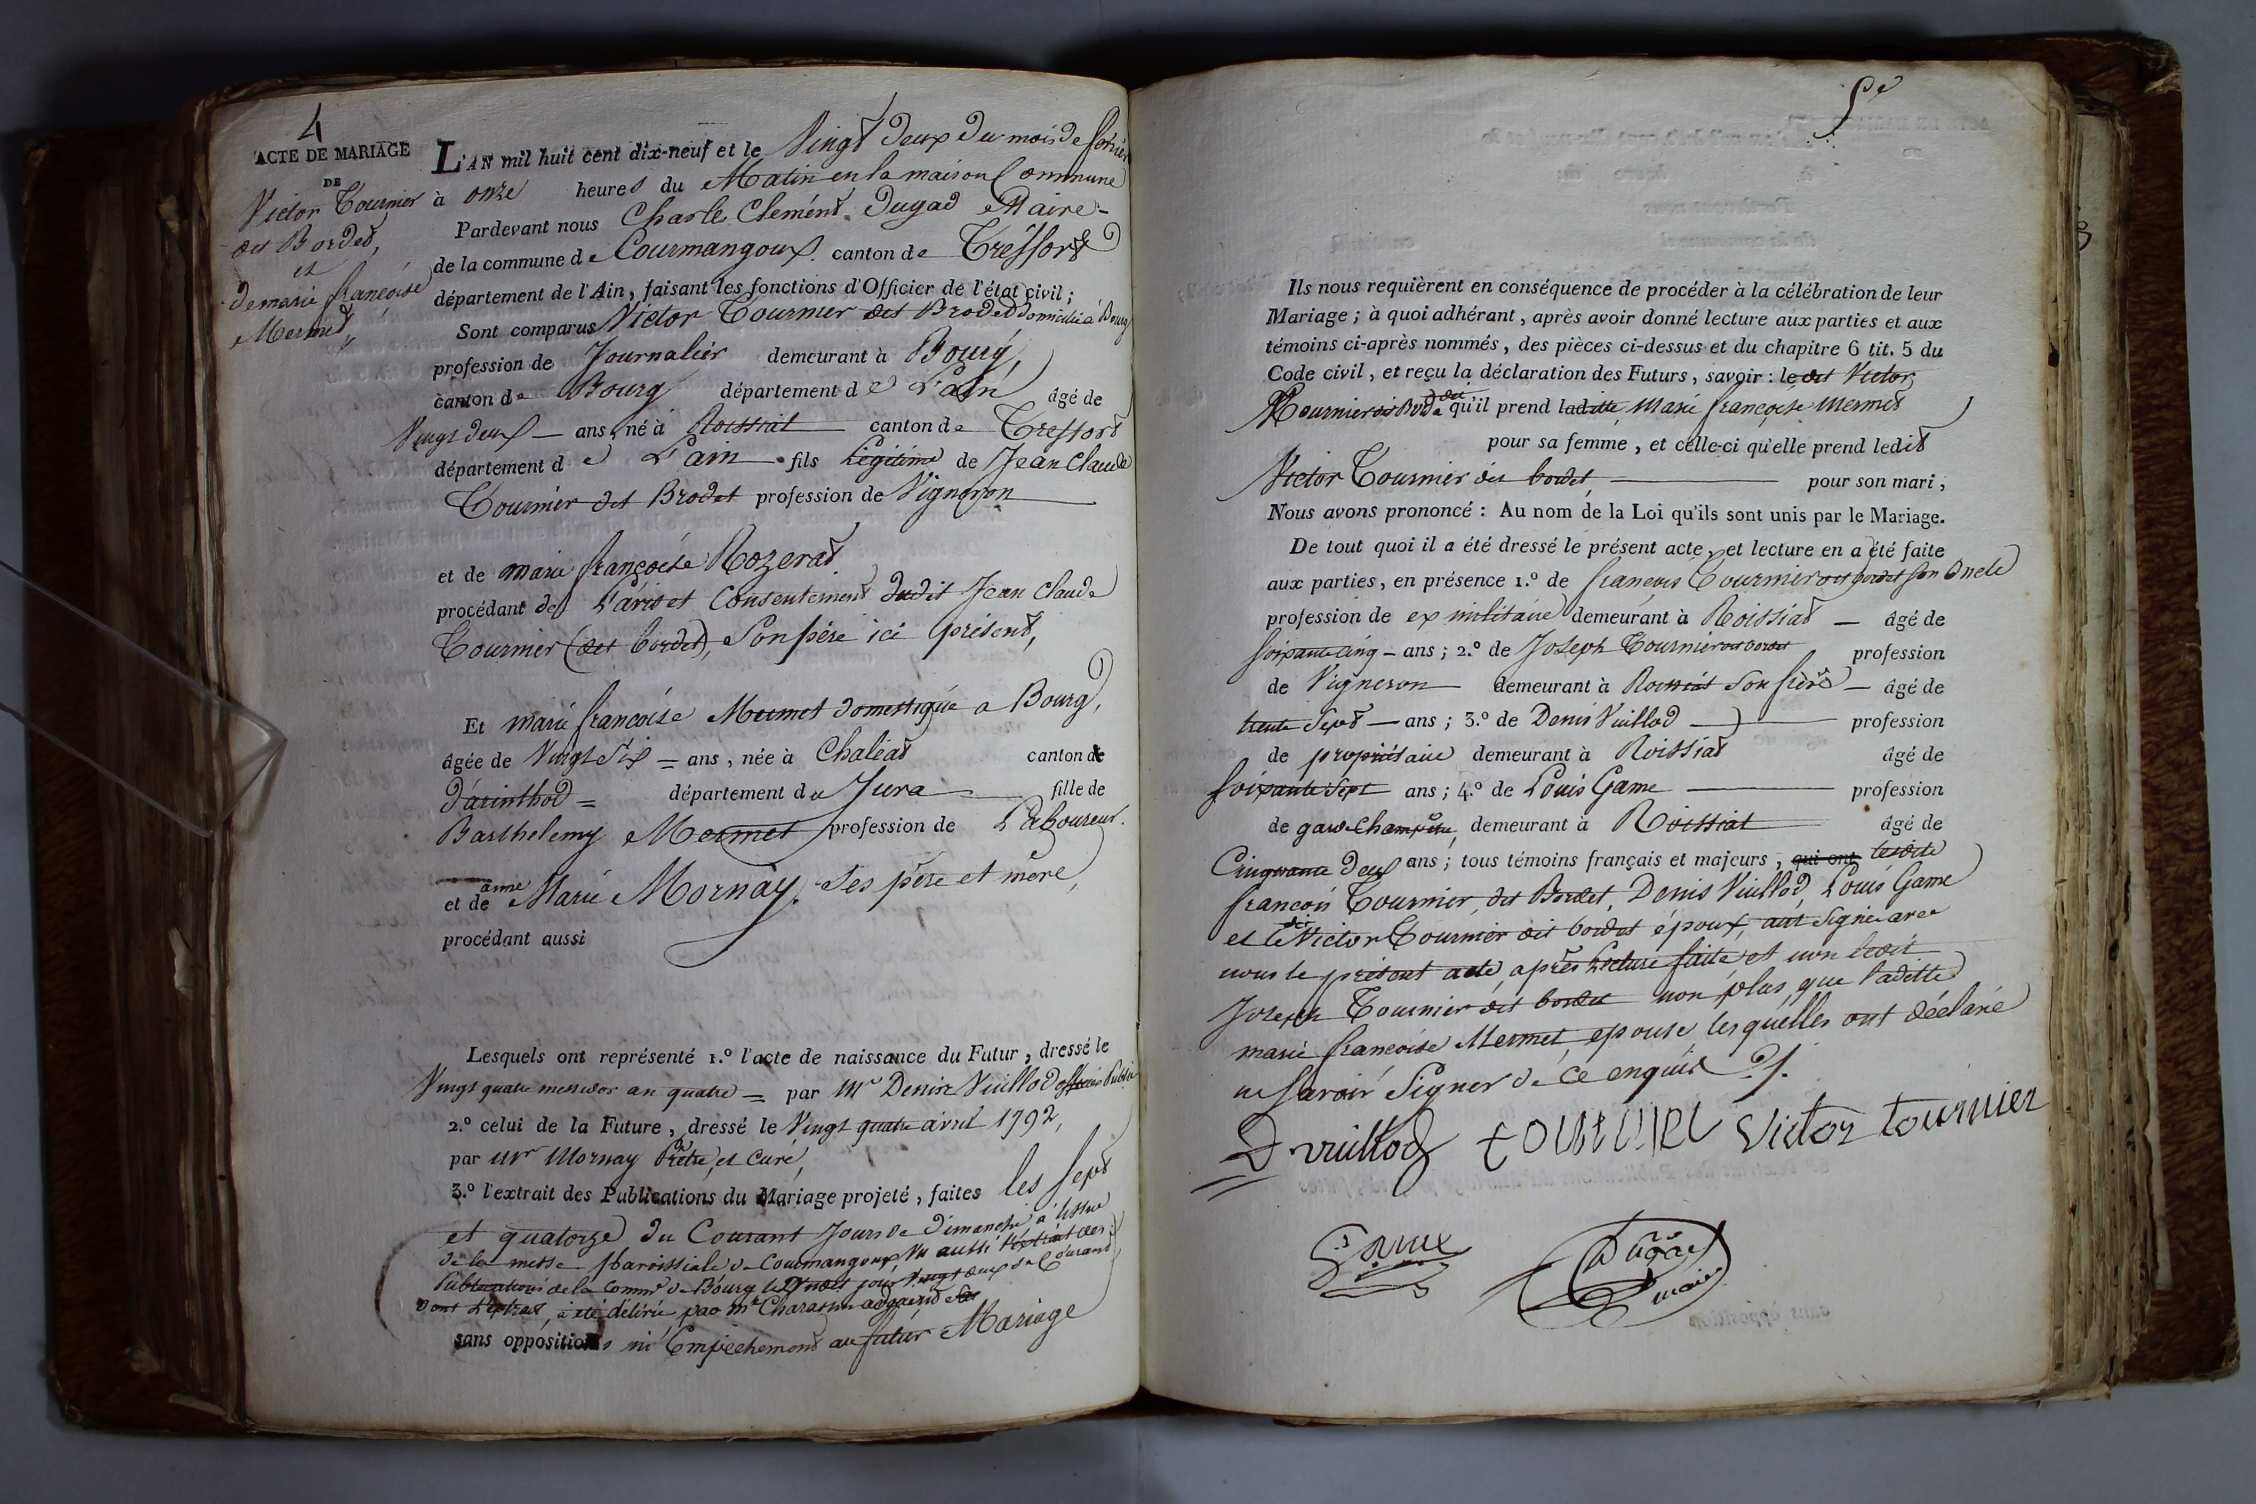 4
ACTE DE MARIAGE
DE
Victor Tournier
dit Bordet,
et
de marie françoise
Mermet
L'AN mil huit cent dix-neuf et le Vingt deux du mois de fevrier
à onze heures du Matin en la maison Commune
Pardevant nous Charle Clemént Dugad Maire
de la commune de Courmangoux canton de Treffort
département de l'Ain, faisant les fonctions d'Officier de l'état civil;
Sont comparus Victor Tournier dit Brodet domicilié à Bourg
profession de Journalier demeurant à Bourg,
canton de Bourg département de L'ain âgé de
Vingt deux ans, né à Roissiat canton de Treffort
département de L'ain fils Légitime de Jean Claude
Tournier dit Brodet profession de Vigneron
et de marie françoise Rozerat
procédant de L'avis et Consentement dudit Jean Claude
Tournier (dit bordet), Son père ici présent,
Et marie francoise Mermet domestique a Bourg,
âgée de Vingt Six = ans, née à Chaléat canton de
D'arinthod = département du Jura fille de
Barthelemy Mermet profession de Laboureur.
et de anne Marie Mornay. Ses père et mère,
procédant aussi
Lesquels ont représenté 1.º l'acte de naissance du Futur, dressé le
Vingt quatre messidor an quatre = par Mr Denis Vuillod officier Public
2.º celui de la Future, dressé le Vingt quatre avril 1792,
par Mr Mornay Prêtre et Curé,
3.º l'extrait des Publications du Mariage projeté, faites les Sept
et quatorze du Courant Jours de Dimanche à l'issue
de la messe paroissiale de Courmangoux, Vu aussi l'extrait des
Publications de la Comme de Bourg
dont L'extrait, a été délivré par Mr
sans oppositions ni Empechement au futur Mariage
5e
Ils nous requièrent en conséquence de procéder à la célébration de leur
Mariage; à quoi adhérant, après avoir donné lecture aux parties et aux
témoins ci-après nommés, des pièces ci-dessus et du chapitre 6 tit. 5 du
Code civil, et reçu la déclaration des Futurs, savoir: le dit Victor
Tournier qu'il prend ladite Marie françoise Mermet
pour sa femme, et celle-ci qu'elle prend ledit
Victor Tournier dit bordet, pour son mari,
Nous avons prononcé: Au nom de la Loi qu'ils sont unis par le Mariage.
De tout quoi il a été dressé le présent acte, et lecture en a été faite
aux parties, en présence 1.º de françois Tournier dit bordet son Oncle
profession de ex militaire demeurant à Roissiat — âgé de
Soixante cinq - ans; 2.º de Joseph Tournier dit bordet profession
de Vigneron demeurant à Roissiat Son frère — âgé de
trente Sept — ans; 3.º de Denis Vuillod profession
de propriétaire demeurant à Roissiat âgé de
Soixante Sept ans; 4.º de Louis Game profession
de garde Champêtre, demeurant à Roissiat âgé de
Cinquante Deux ans; tous témoins français et majeurs, qui ont lesdits
francois Tournier, dit Bordet, Denis Vuillod, Louis Game
et le dit Victor Tournier dit bordet époux, ont Signé avec
nous le présent acte, après Lecture faite et non ledit
Joseph Tournier dit bordet non plus que ladite
marie francoise Mermet, epouse, lesquelles ont déclaré
ne Savoir Signer de Ce enquis
D vuillod Victor tournier
Dugad
maire